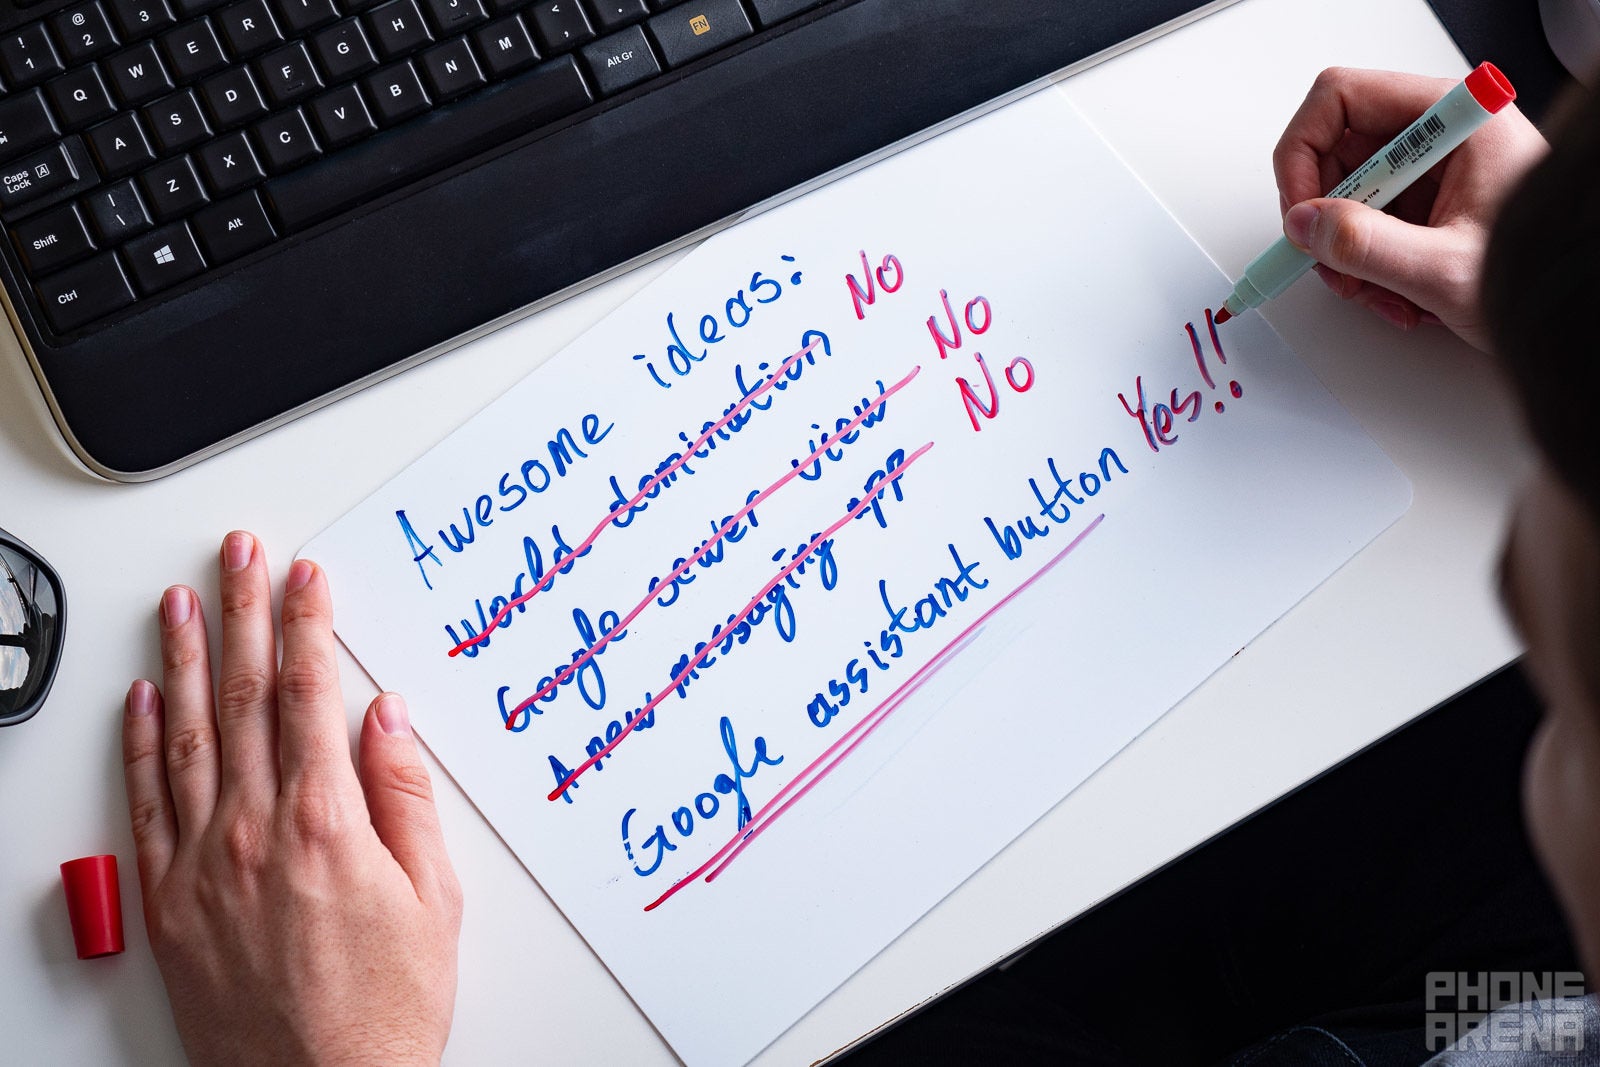 ! 1
@ 2
3
Q
W
E
R
T
Caps Lock A
A
S
D
F
G
H
J
Shift
| \
Z
X
C
V
B
N
M
; ,
: .
Ctrl
Alt
Alt Gr
FN
Awesome ideas:
World domination No
Google sewer view No
A new messaging app No
Google assistant button Yes!!
when not in use
PHONE
ARENA